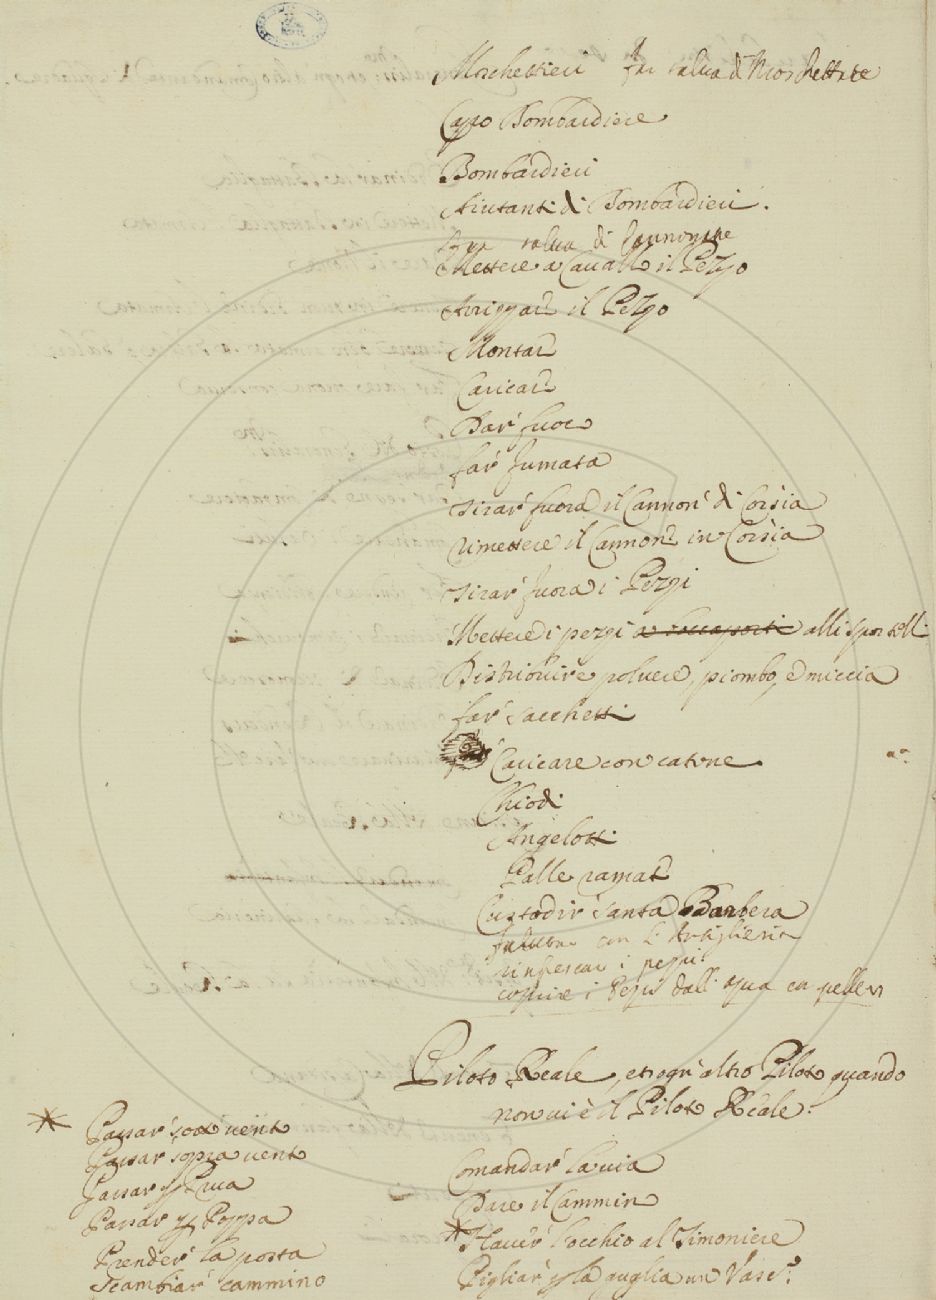 Moschettieri far salva di Moschettate
Cappo Bombardiere
Bombardieri
Aiutanti di Bombardieri.
far salva di Cannonate
Mettere a Cavallo il Pezzo
il Pezzo
Montar
Caricar
Dar fuoco
far fumata
tirar fuora il Cannon di Corsia
rimettere il Cannon in Corsia
tirar fuora i Pezzi
Mettere i pezzi alli sportelli
Distribuire polvere, piombo, e miccia
far sacchetti
Caricare con catene
Chiodi
Angelotti
Palle ramat
Custodir Santa Barbera
con l'Artiglieria
rinfrescar i pezzi
coprire i Pezzi dall aqua co pelle
Piloto Reale, et ogn'altro Piloto quando
non vi è il Piloto Reale.
Comandar la via
Dare il Cammin
* Haver l'occhio al Timoniere
Pigliar p la guglia un Vasc.o
* Passar sotto vento
Passar sopra vento
Passar p Prua
Passar p Poppa
Prender la posta
Scambiar cammino